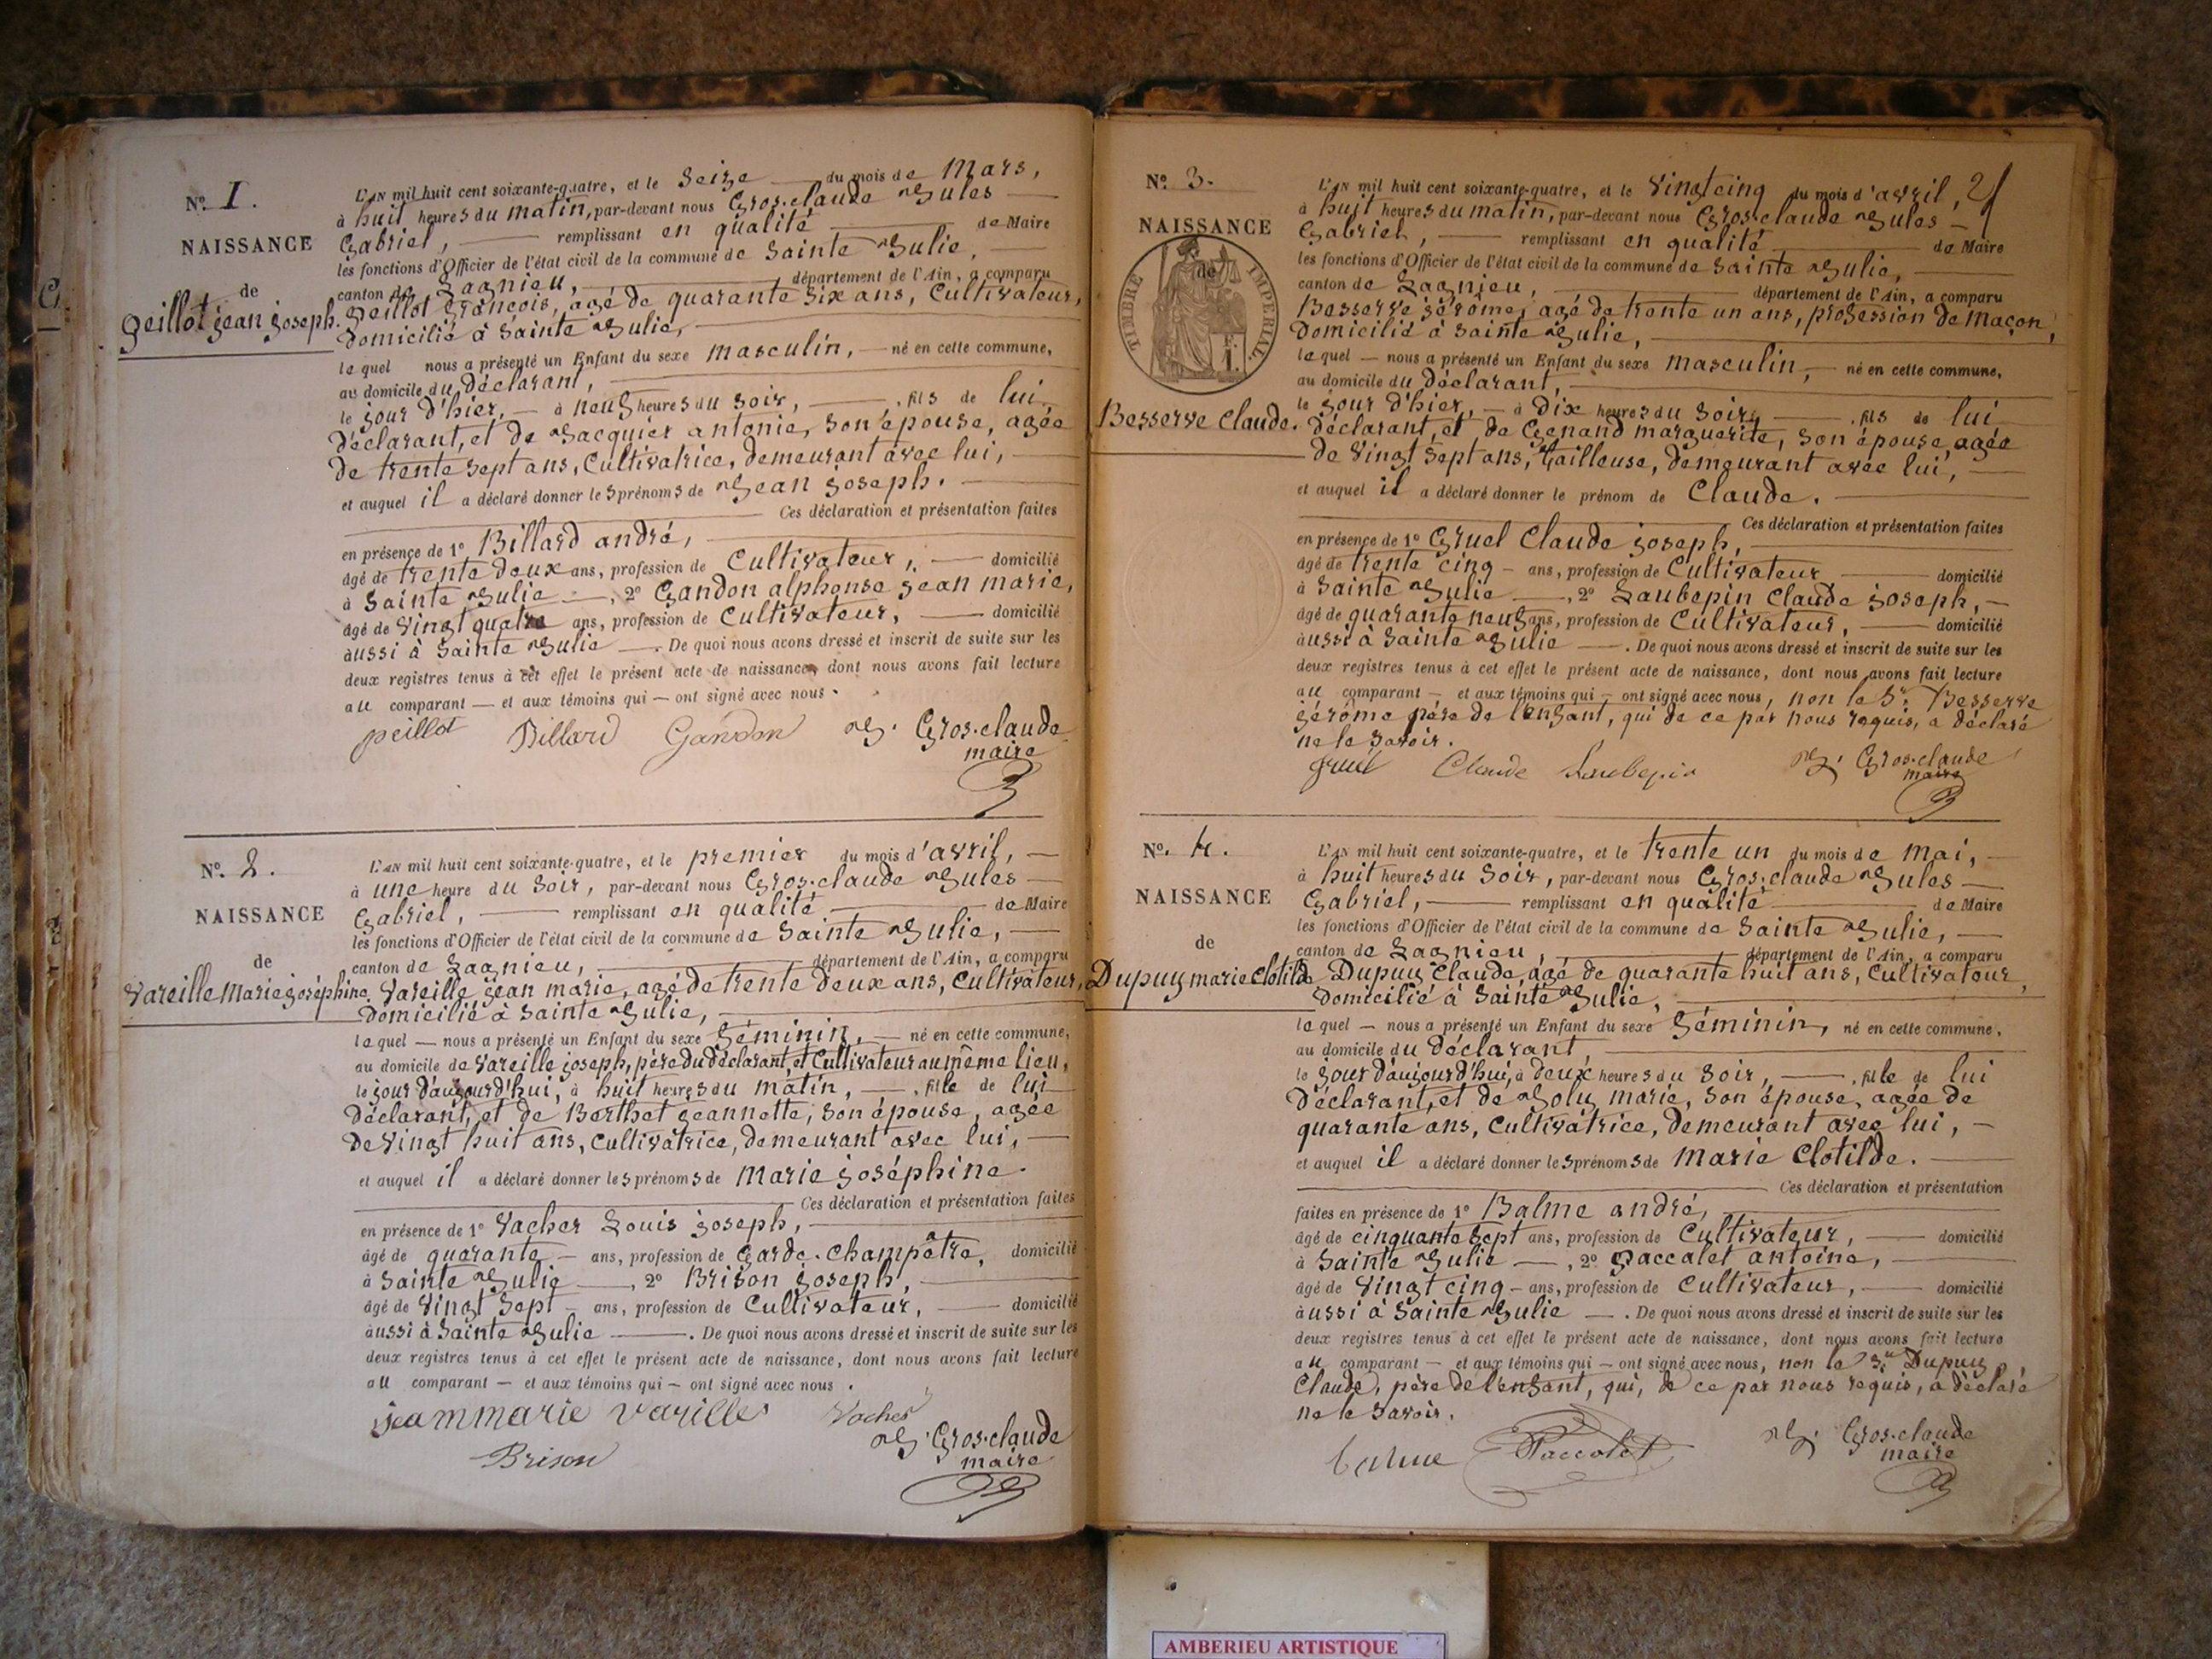 N.º 1.
NAISSANCE
de
Peillot jean joseph.
L'AN mil huit cent soixante-quatre, et le Seize du mois de Mars,
à huit heures du matin, par-devant nous Gros-claude Jules
Gabriel, remplissant en qualité de Maire
les fonctions d'Officier de l'état civil de la commune de Sainte Julie,
canton de Lagnieu, département de l'Ain, a comparu
Peillot François, agé de quarante six ans, Cultivateur,
Domicilié à Sainte Julie,
lequel nous a présenté un Enfant du sexe masculin, né en cette commune,
au domicile du Déclarant,
le jour d'hier, à neuf heures du Soir, fils de lui
Déclarant, et de Jacquier antonie, Son épouse, agée
de trente Sept ans, Cultivatrice, demeurant avec lui,
et auquel il a déclaré donner les prénoms de Jean joseph.
Ces déclaration et présentation faites
en présence de 1º Billard andré,
âgé de trente deux ans, profession de Cultivateur, domicilié
à Sainte Julie, 2º Gandon alphonse jean marie,
âgé de Vingt quatre ans, profession de Cultivateur, domicilié
aussi à Sainte Julie. De quoi nous avons dressé et inscrit de suite sur les
deux registres tenus à cet effet le présent acte de naissance, dont nous avons fait lecture
au comparant et aux témoins qui ont signé avec nous.
peillot Billard Gandon J. Gros-claude
maire
N.º 2.
NAISSANCE
de
Vareille Marie joséphine.
L'AN mil huit cent soixante-quatre, et le premier du mois d'avril,
à une heure du Soir, par-devant nous Gros-claude Jules
Gabriel, remplissant en qualité de Maire
les fonctions d'Officier de l'état civil de la commune de Sainte Julie,
canton de Lagnieu, département de l'Ain, a comparu
Vareille jean marie, agé de trente deux ans, Cultivateur,
Domicilié à Sainte Julie,
lequel nous a présenté un Enfant du sexe féminin, né en cette commune,
au domicile de Vareille joseph, père du déclarant, et Cultivateur au même lieu,
le jour d'aujourd'hui, à huit heures du matin, fille de lui
Déclarant, et de Berthet jeannette, Son épouse, agée
de Vingt huit ans, Cultivatrice, demeurant avec lui,
et auquel il a déclaré donner les prénoms de Marie joséphine.
Ces déclaration et présentation faites
en présence de 1º Vacher Louis joseph,
âgé de quarante ans, profession de Garde-Champêtre, domicilié
à Sainte Julie, 2º Brison joseph,
âgé de Vingt Sept ans, profession de Cultivateur, domicilié
aussi à Sainte Julie. De quoi nous avons dressé et inscrit de suite sur les
deux registres tenus à cet effet le présent acte de naissance, dont nous avons fait lecture
au comparant et aux témoins qui ont signé avec nous.
jeammarie varille Vacher
J. Gros-claude
Brison maire
N.º 3.
NAISSANCE
de
TIMBRE IMPERIAL
F. 1.
Besserve Claude.
L'AN mil huit cent soixante-quatre, et le Vingt cinq du mois d'avril,
à huit heures du matin, par-devant nous Gros-claude Jules
Gabriel, remplissant en qualité de Maire
les fonctions d'Officier de l'état civil de la commune de Sainte Julie,
canton de Lagnieu, département de l'Ain, a comparu
Besserve jérôme, agé de trente un ans, profession de Maçon,
Domicilié à Sainte Julie,
lequel nous a présenté un Enfant du sexe masculin, né en cette commune,
au domicile du Déclarant,
le jour d'hier, à Dix heures du Soir, fils de lui
Déclarant, et de Genand marguerite, Son épouse, agée
de Vingt Sept ans, Tailleuse, demeurant avec lui,
et auquel il a déclaré donner le prénom de Claude.
Ces déclaration et présentation faites
en présence de 1º Gruel Claude joseph,
âgé de trente cinq ans, profession de Cultivateur domicilié
à Sainte Julie, 2º Laubepin Claude joseph,
âgé de quarante neuf ans, profession de Cultivateur, domicilié
aussi à Sainte Julie. De quoi nous avons dressé et inscrit de suite sur les
deux registres tenus à cet effet le présent acte de naissance, dont nous avons fait lecture
au comparant et aux témoins qui ont signé avec nous, non le Sr. Besserve
jérôme père de l'enfant, qui de ce par nous requis, a déclaré
ne le Savoir.
gruel Claude Laubepin J. Gros-claude
maire
N.º 4.
NAISSANCE
de
Dupuy marie Clotilde
L'AN mil huit cent soixante-quatre, et le trente un du mois de mai,
à huit heures du Soir, par-devant nous Gros-claude Jules
Gabriel, remplissant en qualité de Maire
les fonctions d'Officier de l'état civil de la commune de Sainte Julie,
canton de Lagnieu, département de l'Ain, a comparu
Dupuy Claude, agé de quarante huit ans, Cultivateur,
Domicilié à Sainte Julie,
lequel nous a présenté un Enfant du sexe féminin, né en cette commune,
au domicile du Déclarant,
le jour d'aujourd'hui, à deux heures du Soir, fille de lui
Déclarant, et de Joly marie, Son épouse, agée de
quarante ans, Cultivatrice, demeurant avec lui,
et auquel il a déclaré donner les prénoms de Marie Clotilde.
Ces déclaration et présentation
faites en présence de 1º Balme andré,
âgé de cinquante Sept ans, profession de Cultivateur, domicilié
à Sainte Julie, 2º Paccalet antoine,
âgé de Vingt cinq ans, profession de Cultivateur, domicilié
aussi à Sainte Julie. De quoi nous avons dressé et inscrit de suite sur les
deux registres tenus à cet effet le présent acte de naissance, dont nous avons fait lecture
au comparant et aux témoins qui ont signé avec nous, non le Sr. Dupuy
Claude, père de l'enfant, qui, de ce par nous requis, a déclaré
ne le Savoir.
balme Paccalet J. Gros-claude
maire
AMBERIEU ARTISTIQUE